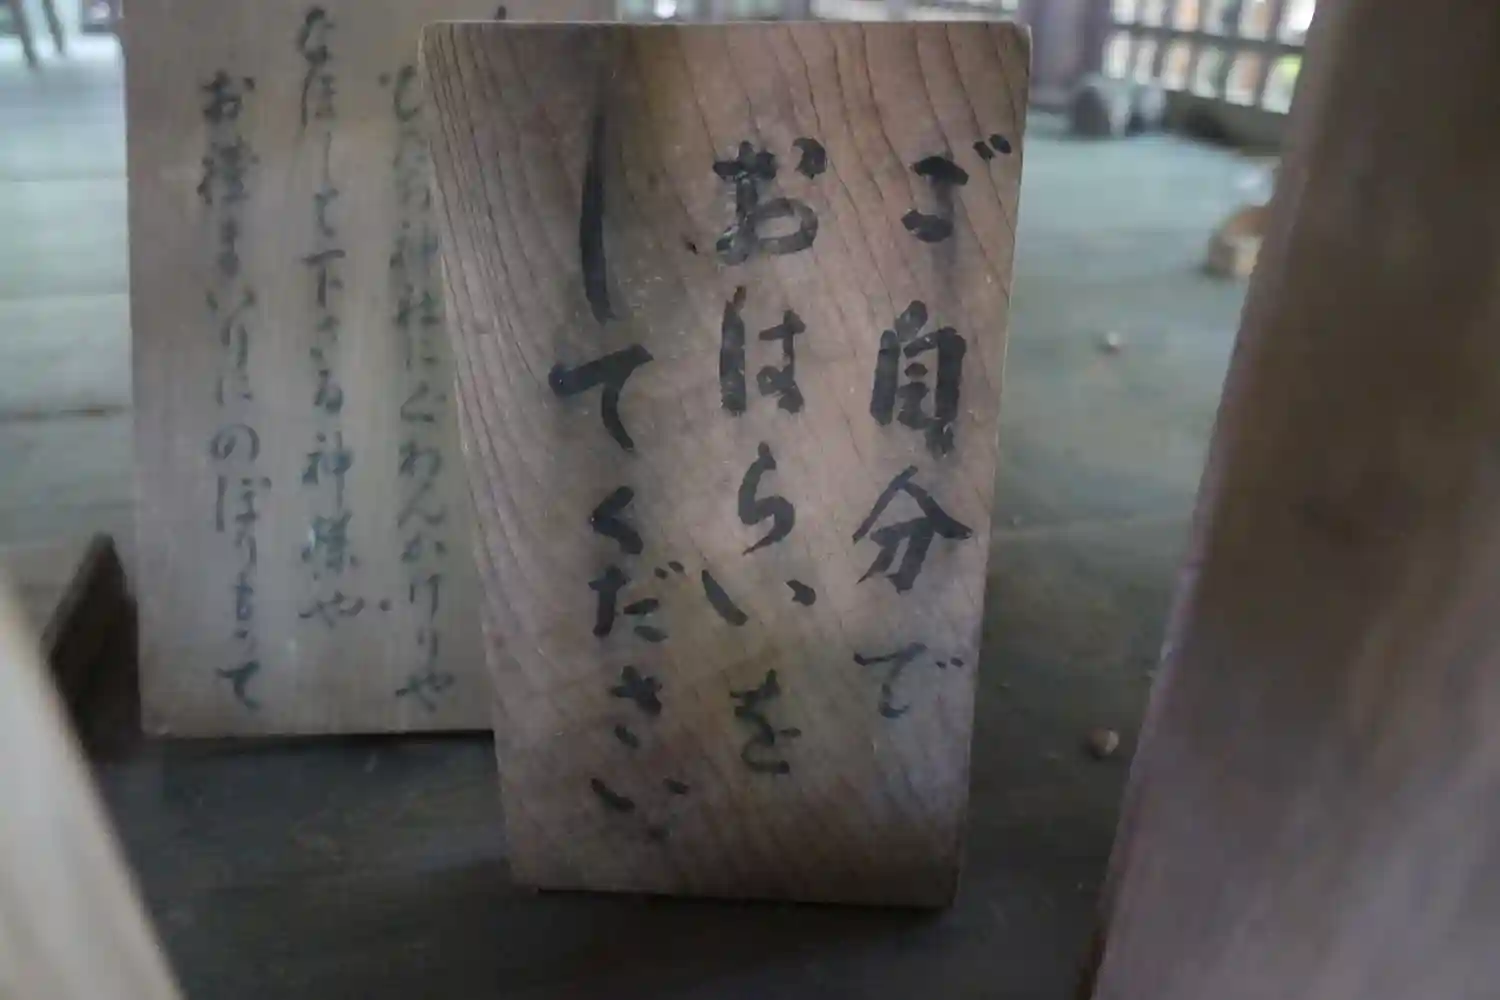 ご自分で
おはらいを
してください
神社にぐわんかけりや
なほして下さる神様や
お礼まいりにのぼりもって